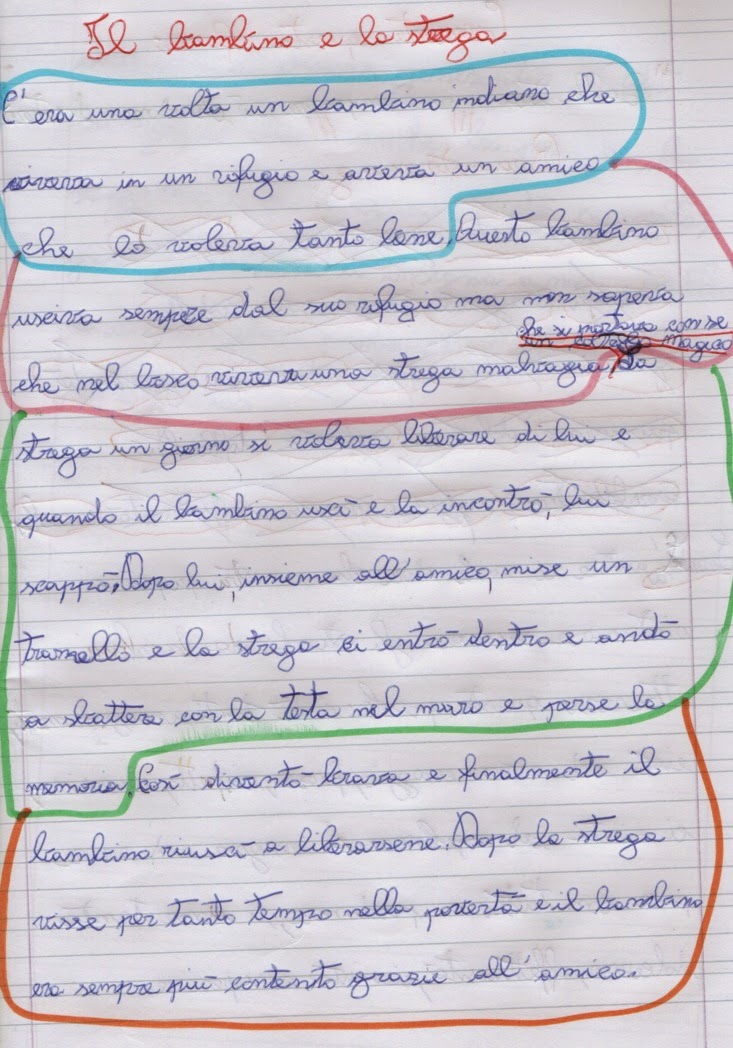 Il bambino e la strega
C'era una volta un bambino indiano che
viveva in un rifugio e aveva un amico
che lo voleva tanto bene. Questo bambino
usciva sempre dal suo rifugio ma non sapeva
che si portava con se
un coltello magico
che nel bosco viveva una strega malvagia, La
strega un giorno si voleva liberare di lui e
quando il bambino uscì e la incontrò, lui
scappò. Dopo lui, insieme all'amico, mise un
tranello e la strega ci entrò dentro e andò
a sbattere con la testa nel muro e perse la
memoria. Così diventò brava e finalmente il
bambino riuscì a liberarsene. Dopo la strega
visse per tanto tempo nella povertà e il bambino
era sempre più contento grazie all'amico.